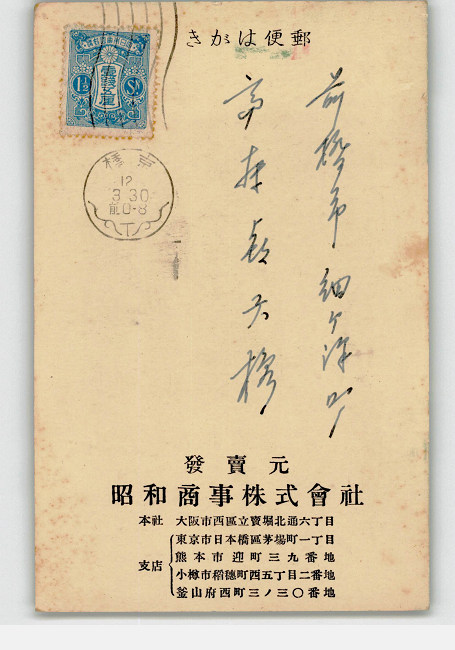 郵便はがき
壹錢五厘
1½ Sn
京橋
12
3 30
前0-8
前橋市 細ヶ沢町
發賣元
昭和商事株式會社
本社 大阪市西區立賣堀北通六丁目
支店 東京市日本橋區茅場町一丁目
熊本市迎町三九番地
小樽市稻穗町西五丁目二番地
釜山府西町三ノ三〇番地